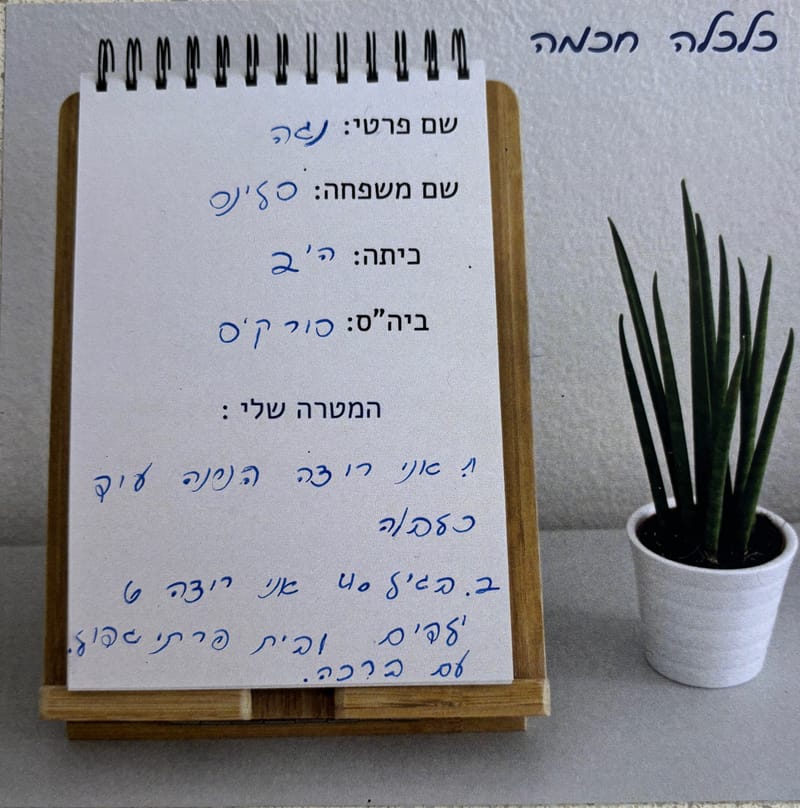 כלכלה חכמה
שם פרטי: נגה
שם משפחה: סלינס
כיתה: ה'ב
ביה"ס: סורקיס
המטרה שלי :
א. אני רוצה השנה
ב. בגיל 40 אני רוצה 6
ילדים ובית פרתי גדול.
עם ברכה.